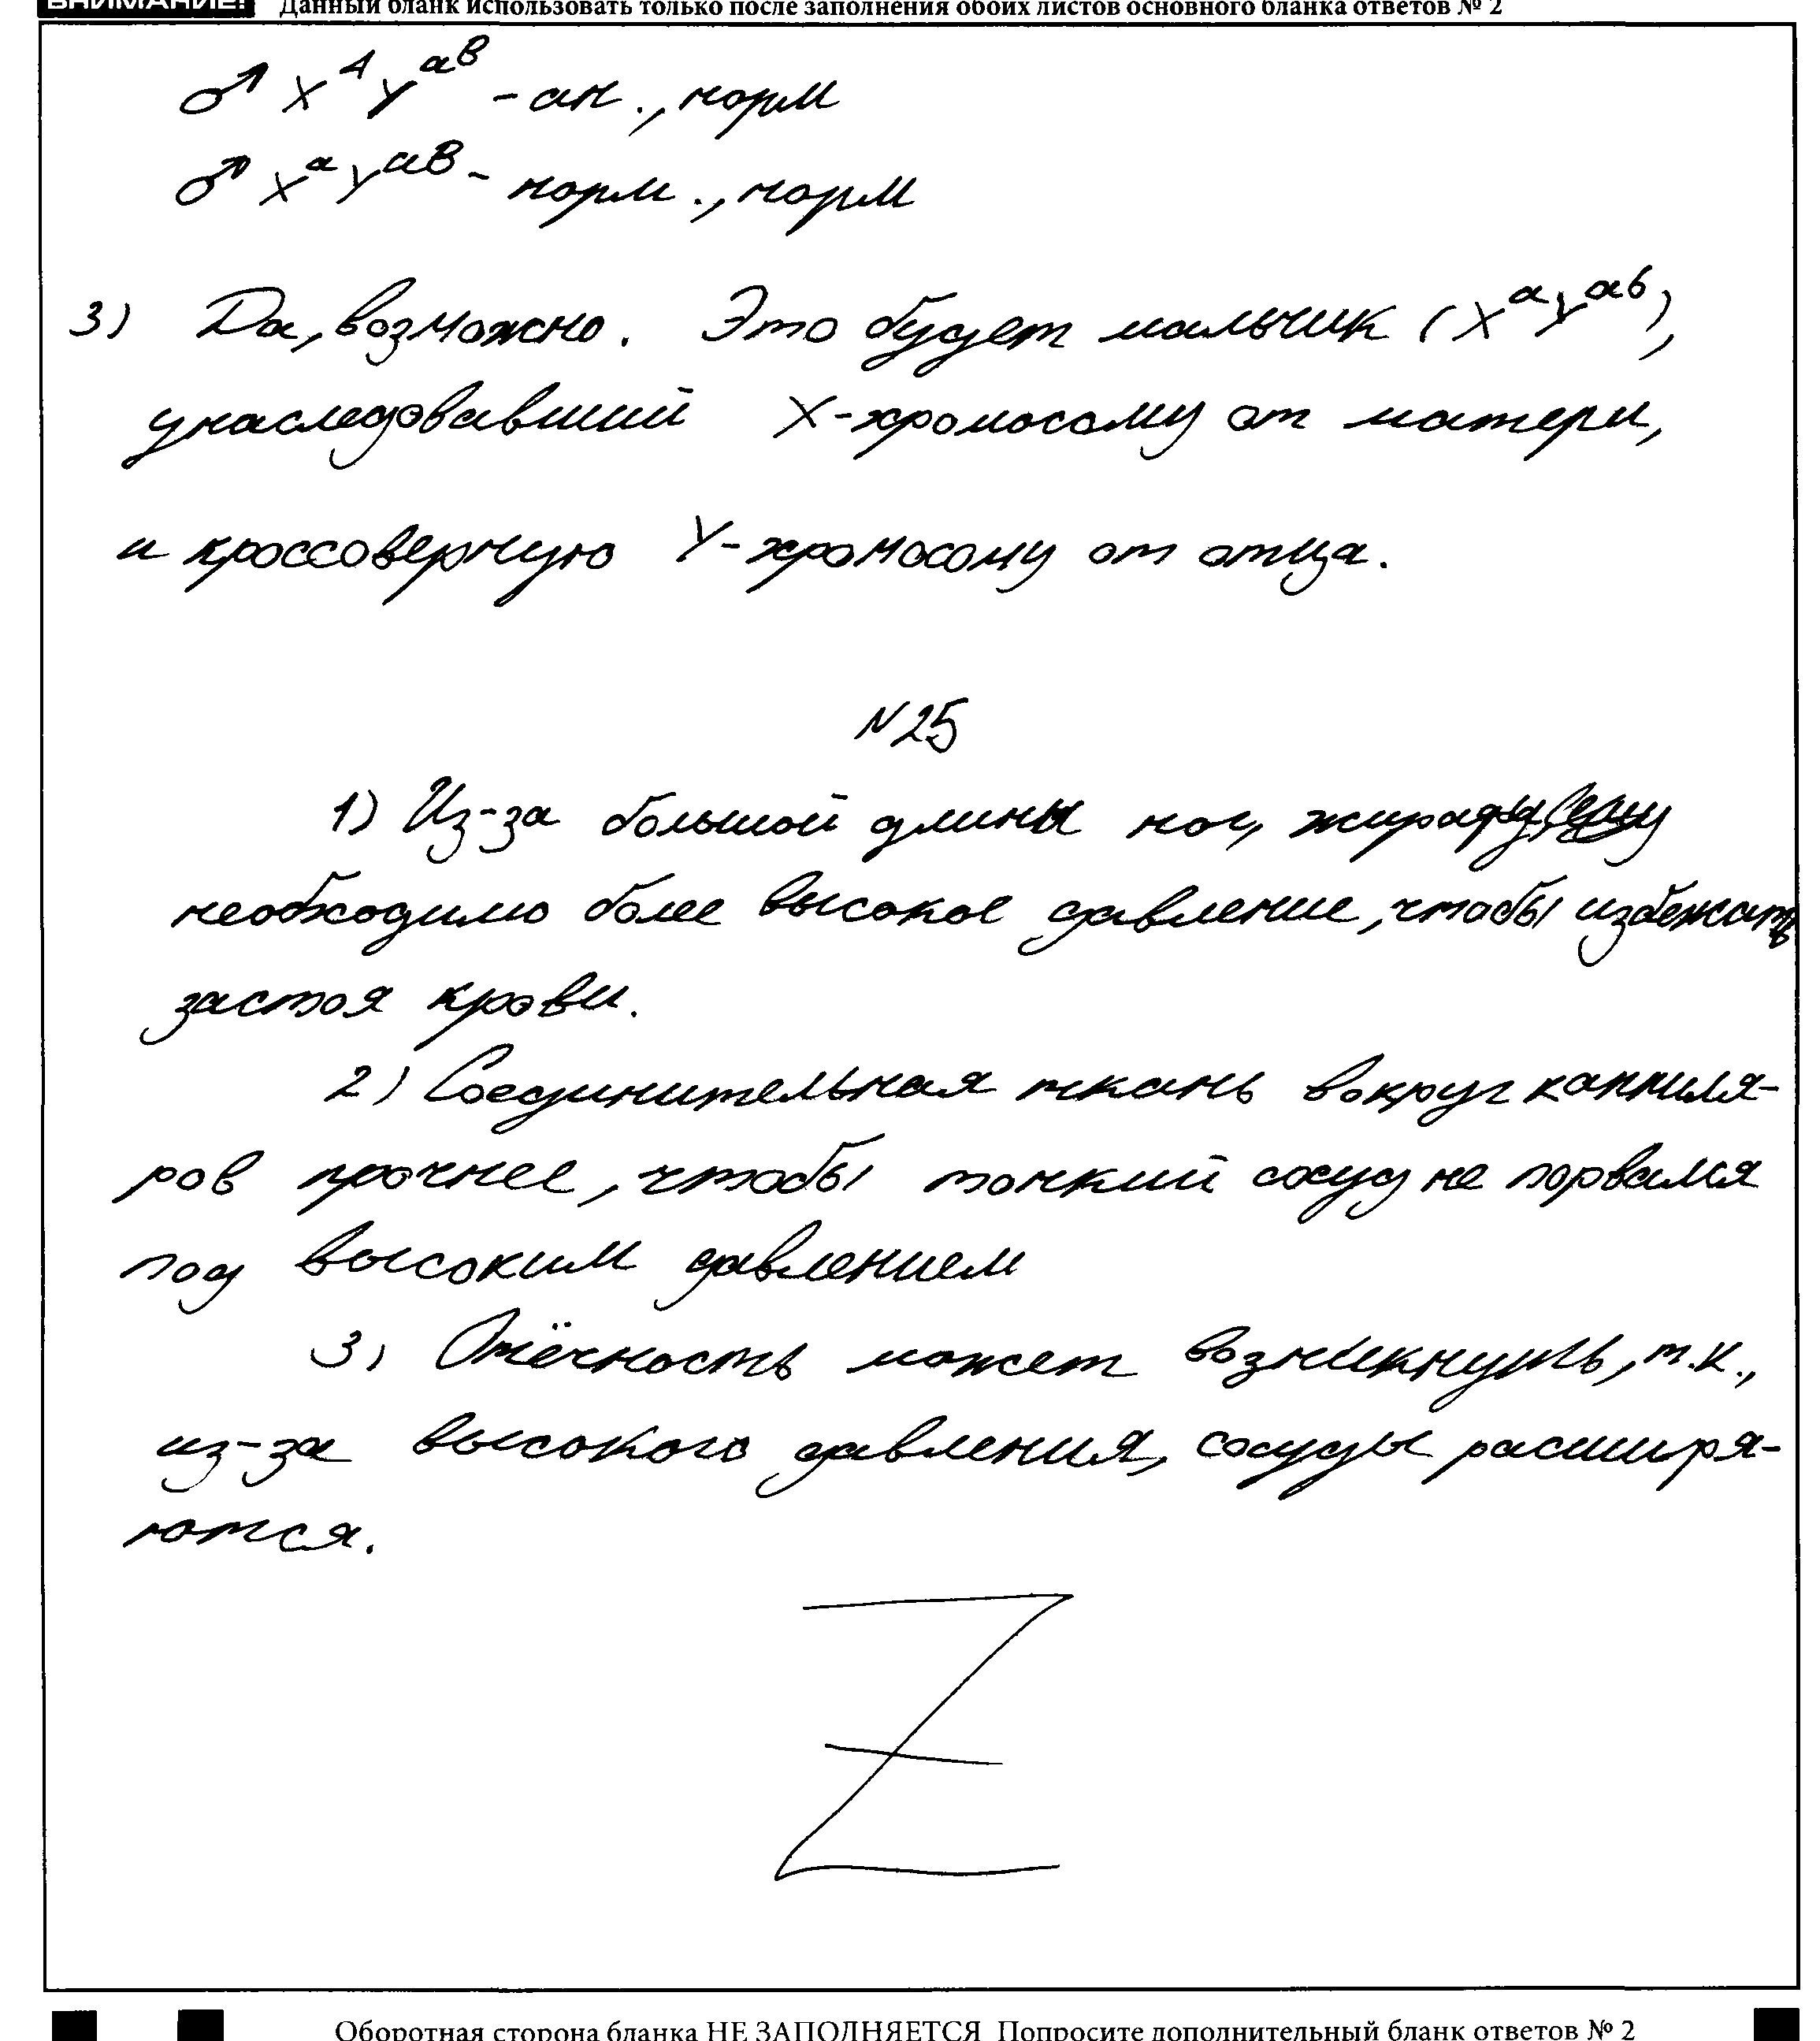 ВНИМАНИЕ! Данный бланк использовать только после заполнения обоих листов основного бланка ответов № 2
♂ X^A Y^aB - ан., норм
♂ X^a Y^aB - норм., норм
3) Да, возможно. Это будет мальчик (X^a Y^ab),
унаследовавший X-хромосому от матери,
и кроссоверную Y-хромосому от отца.
N25
1) Из-за большой длины ног, жирафу
необходимо более высокое давление, чтобы избежать
застоя крови.
2) Соединительная ткань вокруг капиля-
ров прочнее, чтобы тонкий сосуд не порвался
под высоким давлением
3) Отёчность может возникнуть, т.к.,
из-за высокого давления, сосуды расширя-
ются.
Z
Оборотная сторона бланка НЕ ЗАПОЛНЯЕТСЯ Попросите дополнительный бланк ответов № 2